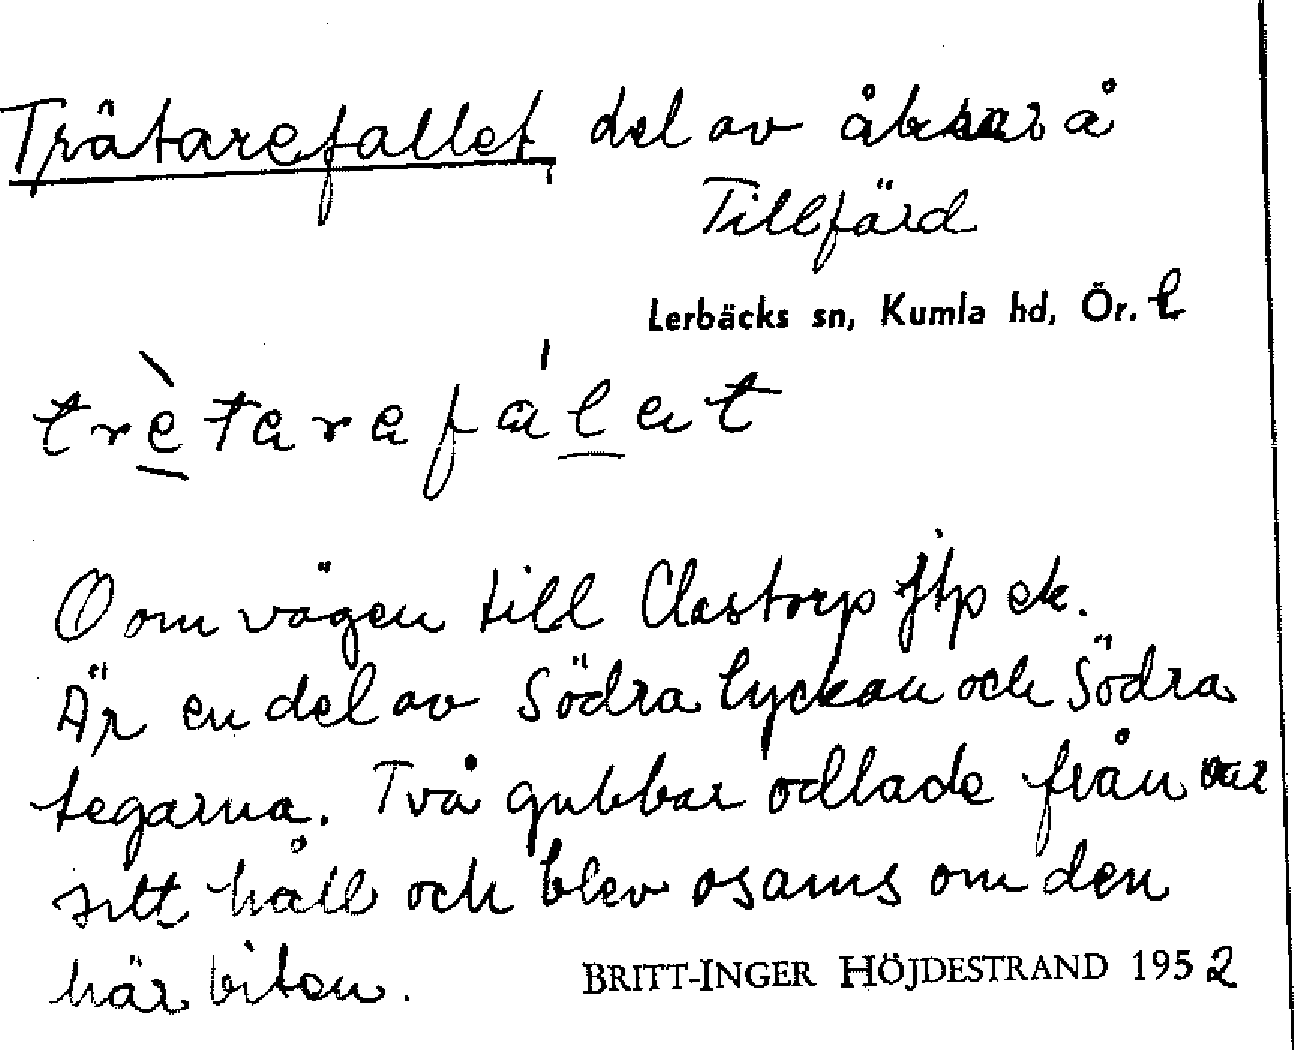 Trätarefallet, del av åkrar å
Tillfärd
Lerbäcks sn, Kumla hd, Ör. l
trètarafálat
O om vägen till Clastorp jtp ek.
Är en del av Södra lyckan och Södra
tegarna. Två gubbar odlade från var
sitt håll och blev osams om den
här biten.
BRITT-INGER HÖJDESTRAND 1952